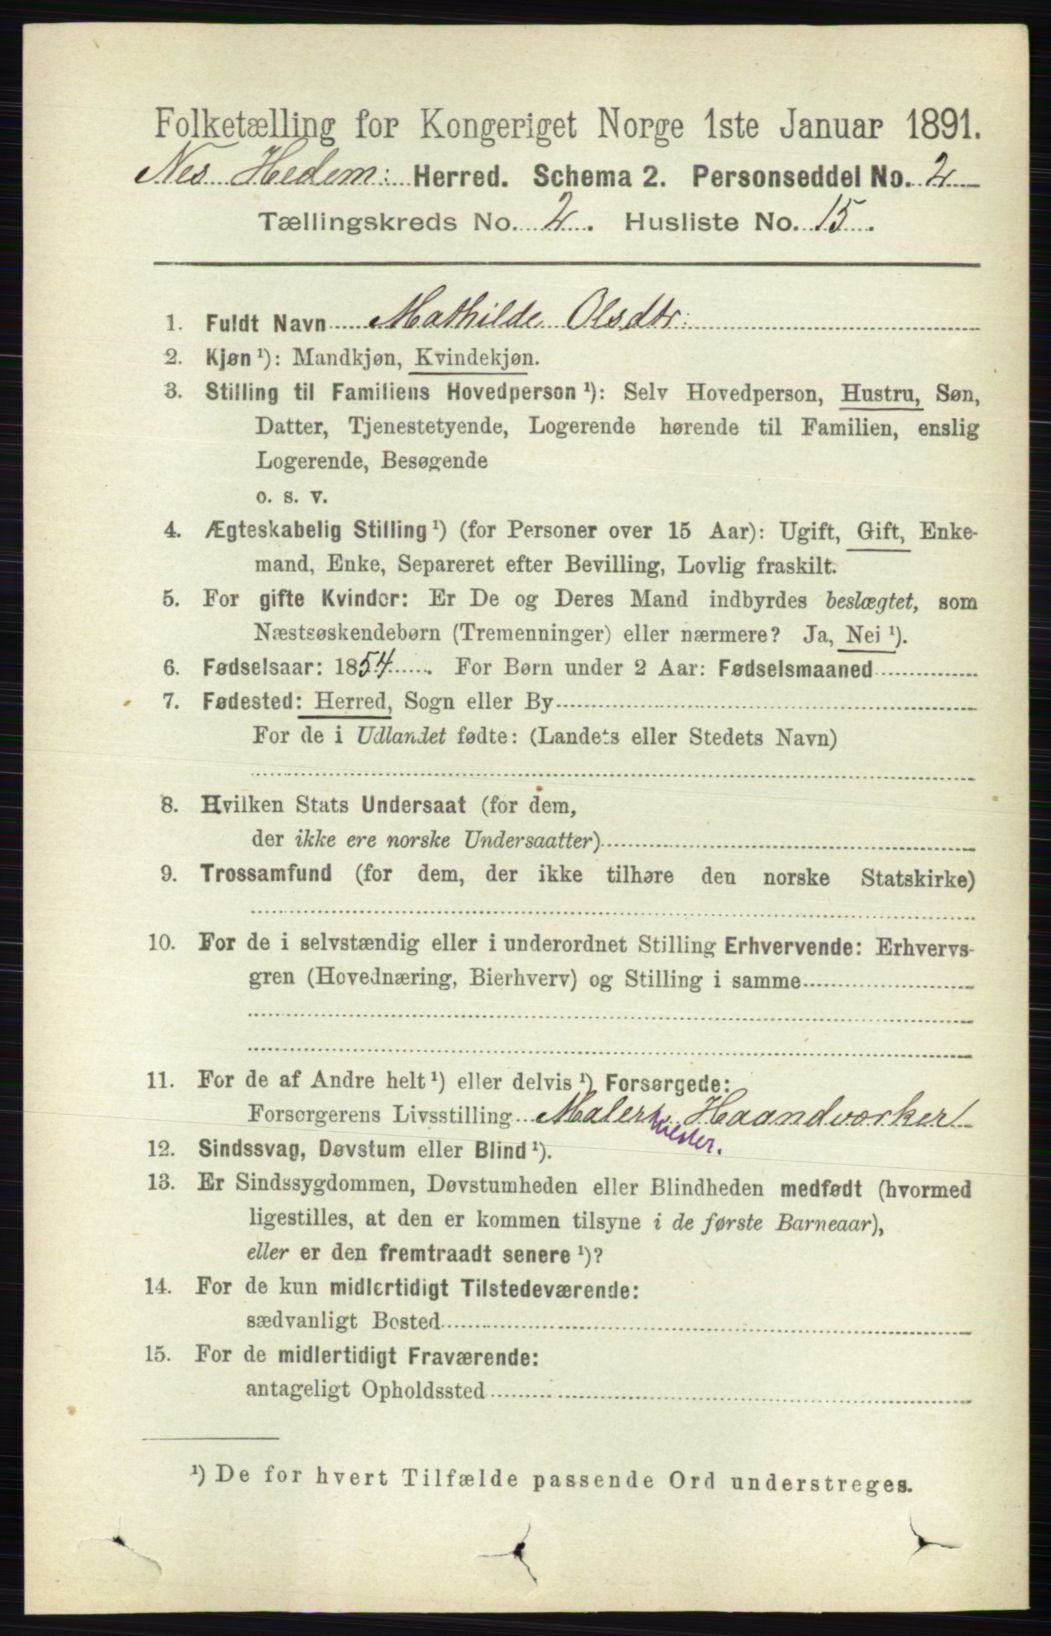 Folketælling for Kongeriget Norge 1ste Januar 1891.
Nes Hedem: Herred. Schema 2. Personseddel No. 2
Tællingskreds No. 2. Husliste No. 15.
1. Fuldt Navn Mathilde Olsdtr:
2. Kjøn ¹): Mandkjøn, Kvindekjøn.
3. Stilling til Familiens Hovedperson ¹): Selv Hovedperson, Hustru, Søn,
Datter, Tjenestetyende, Logerende hørende til Familien, enslig
Logerende, Besøgende
o. s. v.
4. Ægteskabelig Stilling ¹) (for Personer over 15 Aar): Ugift, Gift, Enke-
mand, Enke, Separeret efter Bevilling, Lovlig fraskilt.
5. For gifte Kvinder: Er De og Deres Mand indbyrdes beslægtet, som
Næstsøskendebørn (Tremenninger) eller nærmere? Ja, Nei ¹).
6. Fødselsaar: 1854. For Børn under 2 Aar: Fødselsmaaned
7. Fødested: Herred, Sogn eller By
For de i Udlandet fødte: (Landets eller Stedets Navn)
8. Hvilken Stats Undersaat (for dem,
der ikke ere norske Undersaatter)
9. Trossamfund (for dem, der ikke tilhøre den norske Statskirke)
10. For de i selvstændig eller i underordnet Stilling Erhvervende: Erhvervs-
gren (Hovednæring, Bierhverv) og Stilling i samme
11. For de af Andre helt ¹) eller delvis ¹) Forsørgede:
Forsørgerens Livsstilling Maler Haandværker
12. Sindssvag, Døvstum eller Blind ¹).
13. Er Sindssygdommen, Døvstumheden eller Blindheden medfødt (hvormed
ligestilles, at den er kommen tilsyne i de første Barneaar),
eller er den fremtraadt senere ¹)?
14. For de kun midlertidigt Tilstedeværende:
sædvanligt Bosted
15. For de midlertidigt Fraværende:
antageligt Opholdssted
¹) De for hvert Tilfælde passende Ord understreges.